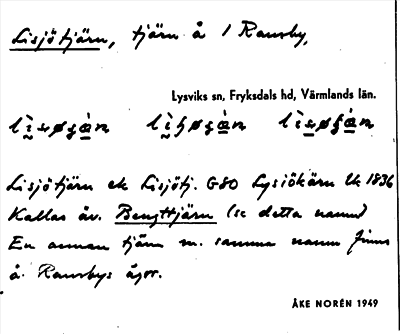 Lisjötjärn, tjärn å 1 Ransby,
Lysviks sn, Fryksdals hd, Värmlands län.
Lisjötjärn ek Lisjötj. G80 Lysiökärn Uk 1836
Kallas äv. Bengttjärn (se detta namn)
En annan tjärn m. samma namn finns
å Ransbys ägor.
ÅKE NORÉN 1949